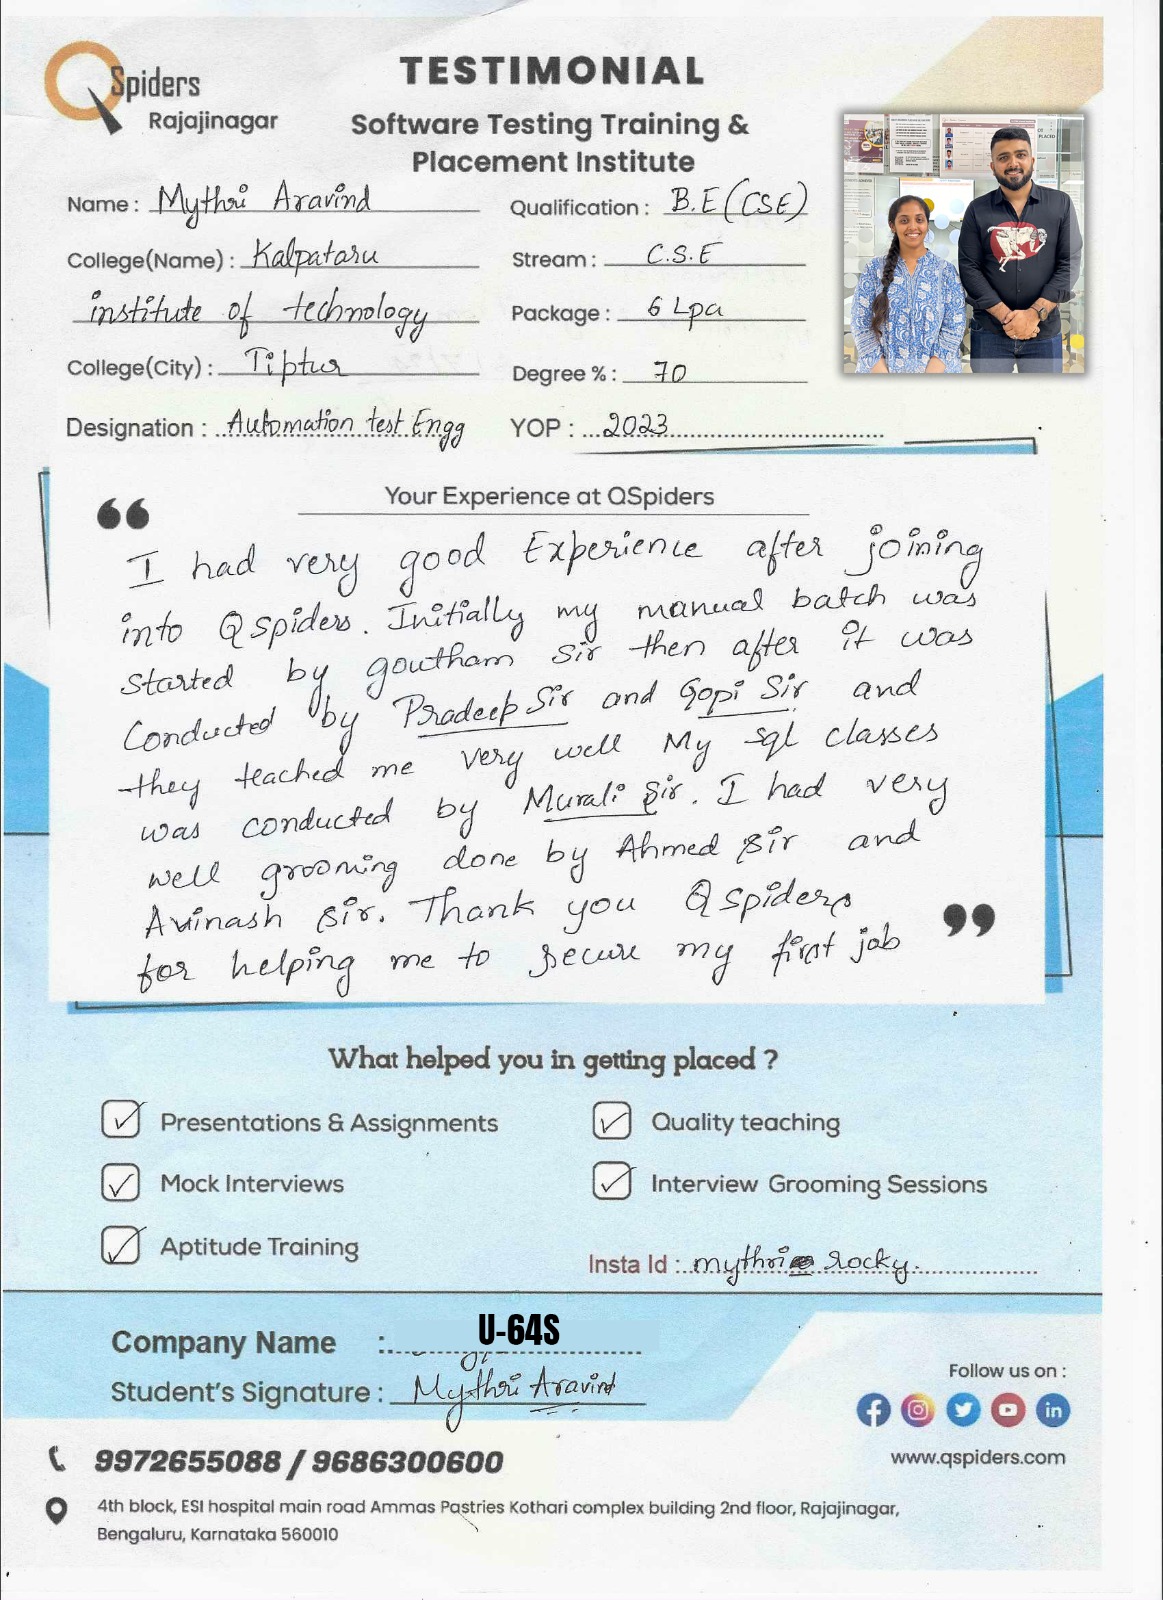 QSpiders
Rajajinagar
TESTIMONIAL
Software Testing Training &
Placement Institute
Name : Mythri Aravind
Qualification : B.E (CSE)
College(Name) : Kalpataru
Stream : C.S.E
institute of technology
Package : 6 Lpa
College(City) : Tiptur
Degree % : 70
Designation : Automation test Engg
YOP : 2023
Your Experience at QSpiders
“
I had very good Experience after joining
into Qspiders. Initially my manual batch was
started by goutham Sir then after it was
Conducted by Pradeep Sir and Gopi Sir and
they teached me very well My sql classes
was conducted by Murali Sir. I had very
well grooming done by Ahmed Sir and
Avinash Sir. Thank you Qspiders
for helping me to secure my first job
”
What helped you in getting placed ?
Presentations & Assignments
Quality teaching
Mock Interviews
Interview Grooming Sessions
Aptitude Training
Insta Id : mythri rocky.
Company Name : U-64S
Student's Signature : Mythri Aravind
Follow us on :
www.qspiders.com
9972655088 / 9686300600
4th block, ESI hospital main road Ammas Pastries Kothari complex building 2nd floor, Rajajinagar,
Bengaluru, Karnataka 560010